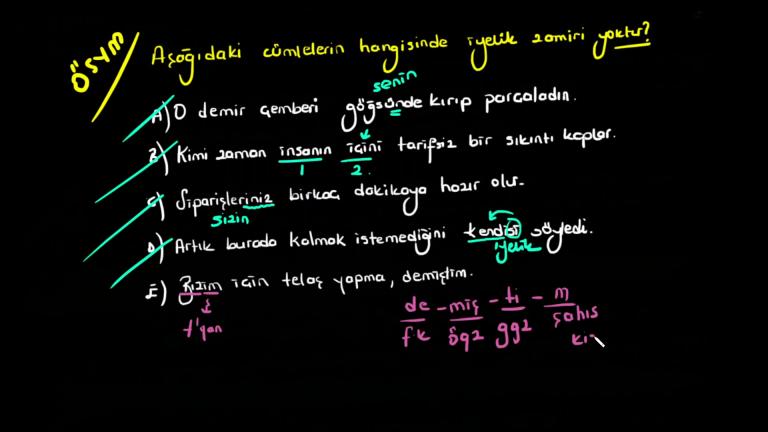 ÖSYM
Aşağıdaki cümlelerin hangisinde iyelik zamiri yoktur?
senin
A) O demir çemberi göğsünde kırıp parçaladın.
B) Kimi zaman insanın içini tarifsiz bir sıkıntı kaplar.
1 2.
C) Siparişleriniz birkaç dakikaya hazır olur.
sizin
D) Artık burada kalmak istemediğini kendisi söyledi.
iyelik
E) Bizim için telaş yapma, demiştim.
t'yan
de - miş - ti - m
fk öğz ggz şahıs
ki